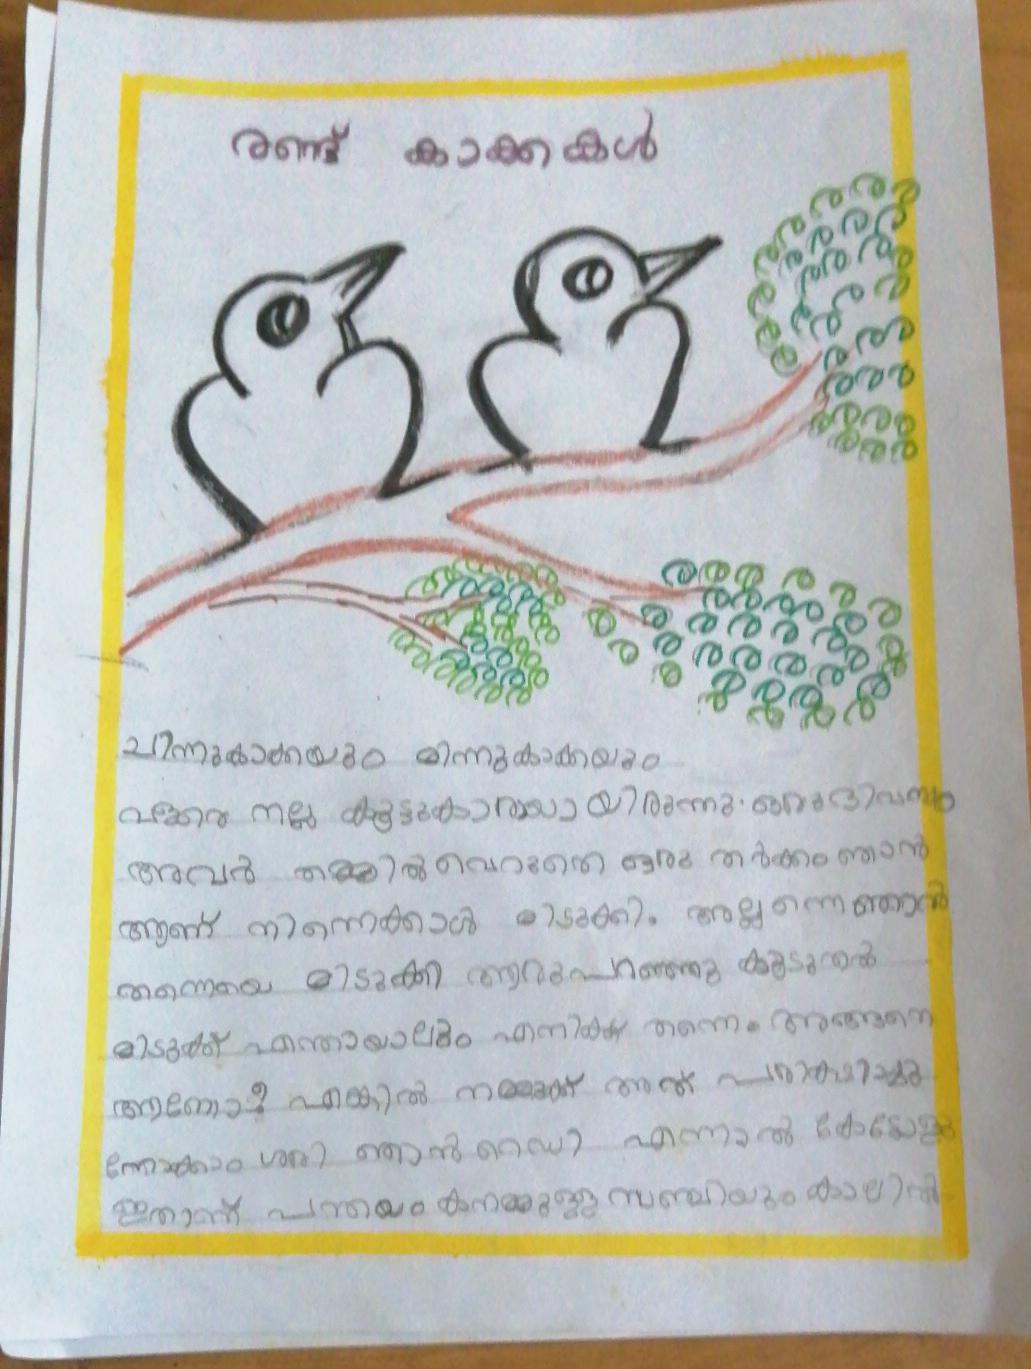 രണ്ട് കാക്കകൾ
ചിന്നുകാക്കയും മിന്നുകാക്കയും
വളരെ നല്ല കൂട്ടുകാരായിരുന്നു. ഒരു ദിവസം
അവർ തമ്മിൽ വെറുതെ ഒരു തർക്കം ഞാൻ
ആണ് നിന്നെക്കാൾ മിടുക്കി. അല്ല ഞാൻ
തന്നെയെ മിടുക്കി ആരു പറഞ്ഞു കൂടുതൽ
മിടുക്ക് എന്തായാലും എനിക്ക് തന്നെ. അങ്ങനെ
ആണോ? എങ്കിൽ നമ്മുക്ക് അത് പരീക്ഷിച്ചു
ന്നോക്കാം ശരി ഞാൻ റെഡി എന്നാൽ കേട്ടോളൂ
ഇതാണ് പന്തയം കനമുള്ള സഞ്ചിയും കാലിൽ